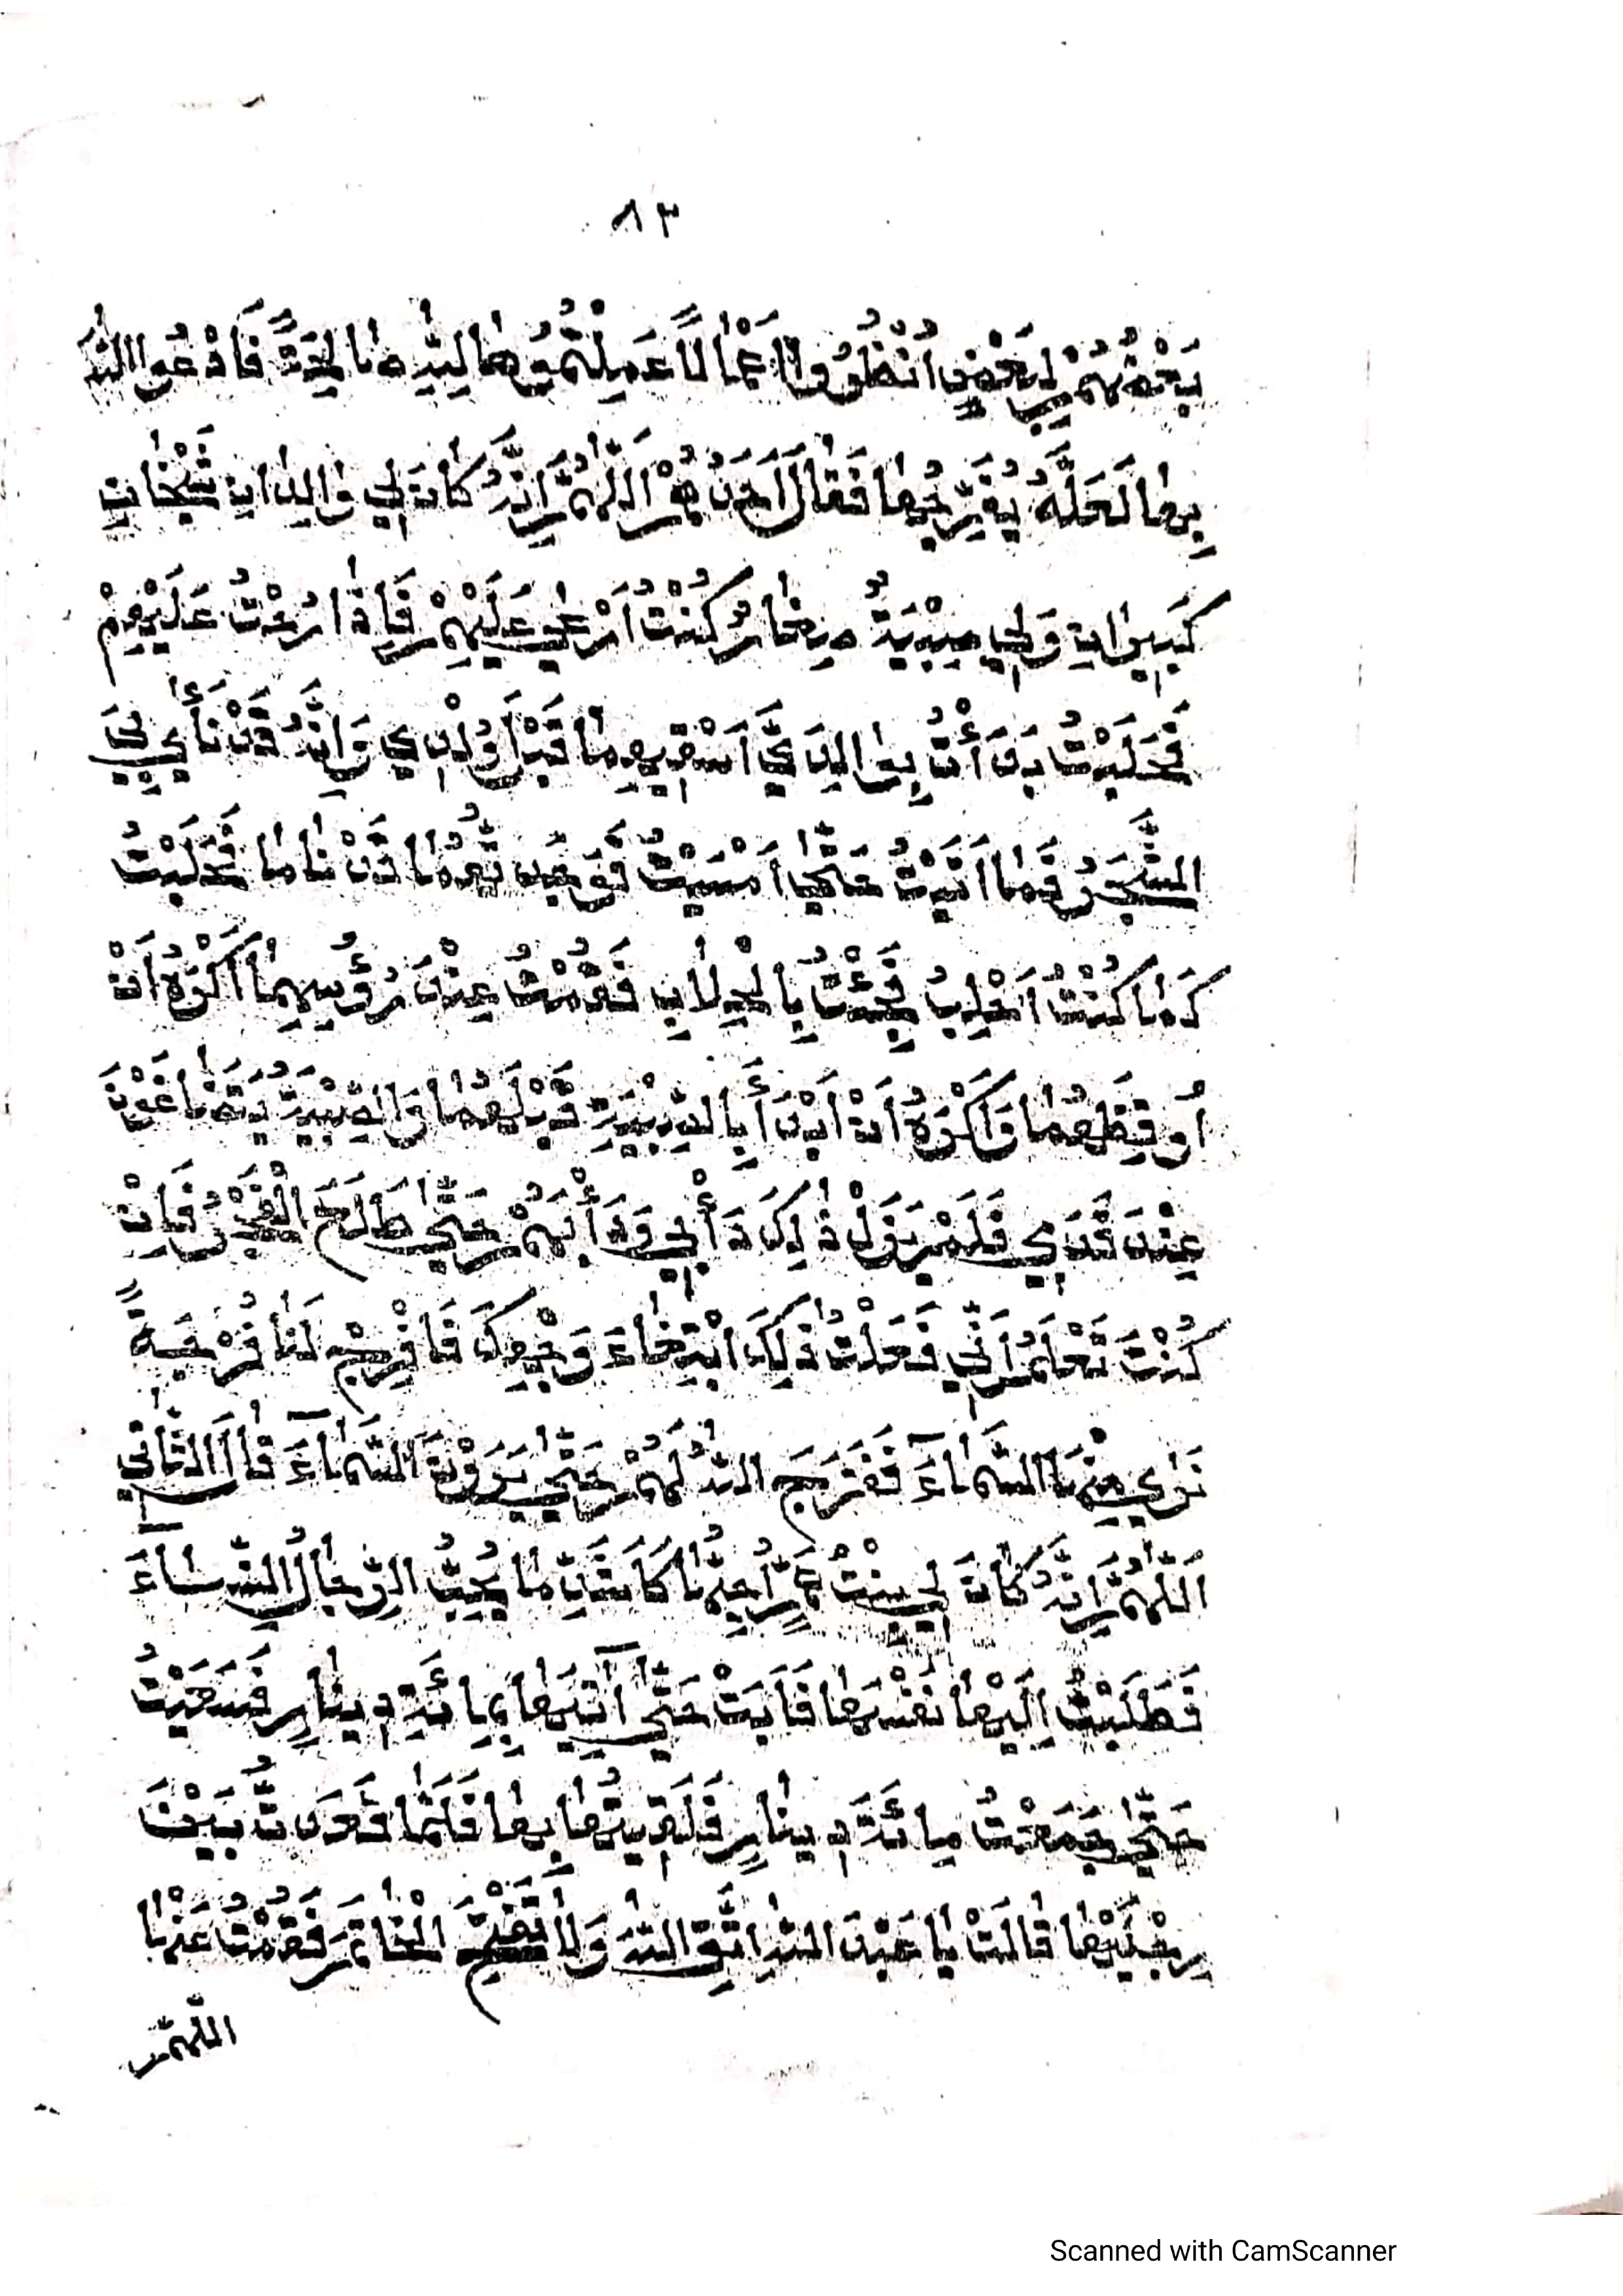 ٨٣
بَعْضُهُمْ لِبَعْضٍ اُنْظُرُوا اَعْمَالًا عَمِلْتُمُوهَا لِلّٰهِ صَالِحَةً فَادْعُوا اللّٰهَ
بِهَا لَعَلَّهُ يُفَرِّجُهَا فَقَالَ اَحَدُهُمْ اَللّٰهُمَّ اِنَّهُ كَانَ لِي وَالِدَانِ شَيْخَانِ
كَبِيرَانِ وَلِي صِبْيَةٌ صِغَارٌ كُنْتُ اَرْعٰى عَلَيْهِمْ فَاِذَا رُحْتُ عَلَيْهِمْ
فَحَلَبْتُ بَدَأْتُ بِوَالِدَيَّ اَسْقِيهِمَا قَبْلَ وُلْدِي وَاِنَّهُ قَدْ نَأٰى بِيَ
الشَّجَرُ فَمَا اَتَيْتُ حَتّٰى اَمْسَيْتُ فَوَجَدتُّهُمَا قَدْ نَامَا فَحَلَبْتُ
كَمَا كُنْتُ اَحْلِبُ فَجِئْتُ بِالْحِلَابِ فَقُمْتُ عِنْدَ رُؤُسِهِمَا اَكْرَهُ اَنْ
اُوقِظَهُمَا وَاَكْرَهُ اَنْ اَبْدَأَ بِالصِّبْيَةِ قَبْلَهُمَا وَالصِّبْيَةُ يَتَضَاغَوْنَ
عِنْدَ قَدَمَي فَلَمْ يَزَلْ ذٰلِكَ دَأْبِي وَدَأْبَهُمْ حَتّٰى طَلَعَ الْفَجْرُ فَاِنْ
كُنْتَ تَعْلَمُ اَنِّي فَعَلْتُ ذٰلِكَ ابْتِغَاءَ وَجْهِكَ فَافْرِجْ لَنَا فُرْجَةً
نَرٰى مِنْهَا السَّمَاءَ فَفَرَّجَ اللّٰهُ لَهُمْ حَتّٰى يَرَوْنَ السَّمَاءَ قَالَ الثَّانِي
اَللّٰهُمَّ اِنَّهُ كَانَ لِي بِنْتُ عَمٍّ اُحِبُّهَا كَاَشَدِّ مَا يُحِبُّ الرِّجَالُ النِّسَاءَ
فَطَلَبْتُ اِلَيْهَا نَفْسَهَا فَاَبَتْ حَتّٰى آتِيَهَا بِمِائَةِ دِينَارٍ فَسَعَيْتُ
حَتّٰى جَمَعْتُ مِائَةَ دِينَارٍ فَلَقِيتُهَا بِهَا فَلَمَّا قَعَدتُّ بَيْنَ
رِجْلَيْهَا قَالَتْ يَا عَبْدَ اللّٰهِ اتَّقِ اللّٰهَ وَلَا تَفْتَحِ الْخَاتَمَ فَقُمْتُ عَنْهَا
اللّٰهُمَّ
Scanned with CamScanner